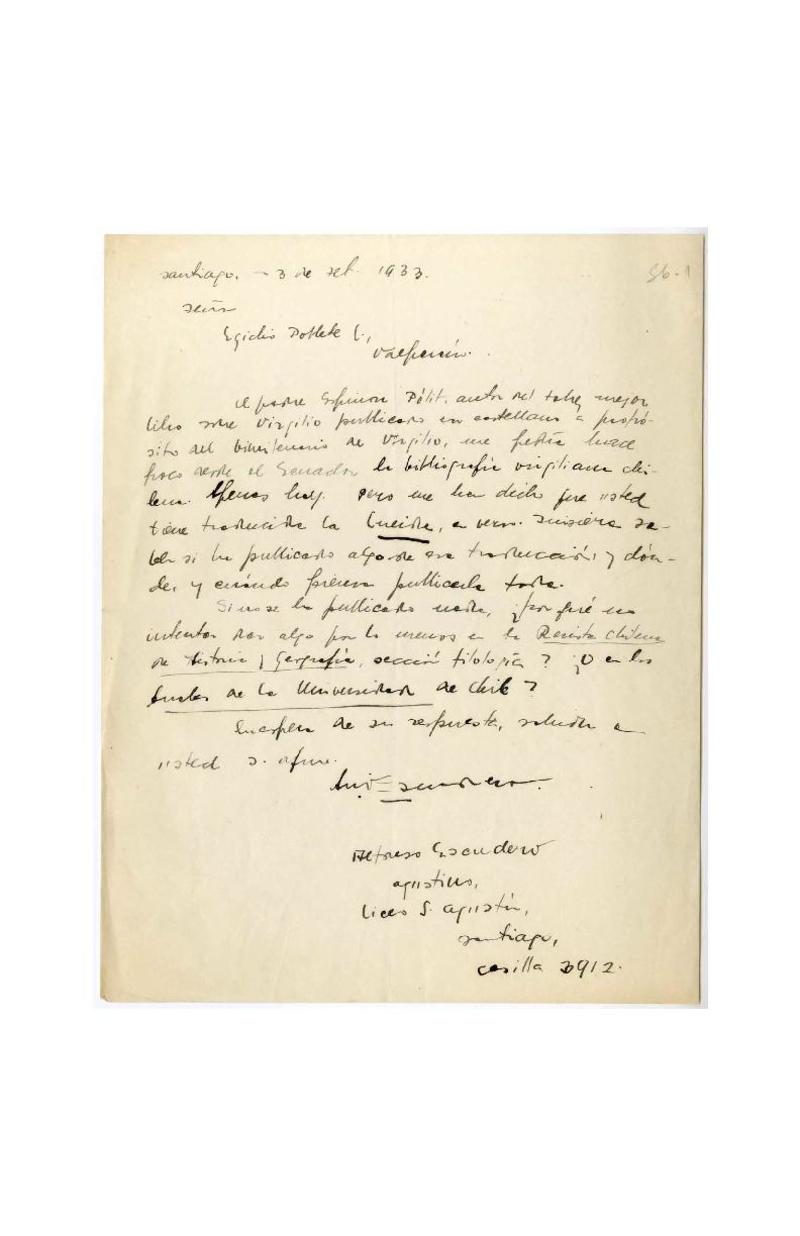 santiago, - 3 de set. 1933.
56-1
señor
Egidio Poblete E.,
Valparaíso.
El padre Espinosa Pólit, autor del talvez mejor
libro sobre Virgilio publicado en castellano a propó-
sito del bimilenario de Virgilio, me pedía hace
poco desde el Ecuador la bibliografía virgiliana chi-
lena. Apenas hay. Pero me han dicho que usted
tiene traducida la Eneida, en verso. Quisiera sa-
ber si ha publicado algo de esa traducción, y dón-
de, y cuándo piensa publicarla toda.
Si no se ha publicado nada, ¿por qué no
intentar dar algo por lo menos en la Revista Chilena
de Historia y Geografía, sección filología? ¿O en los
Anales de la Universidad de Chile?
En espera de su respuesta, saluda a
usted s. afmo.
Escudero.
Alfonso Escudero
agustino,
Liceo S. Agustín,
santiago,
casilla 3912.